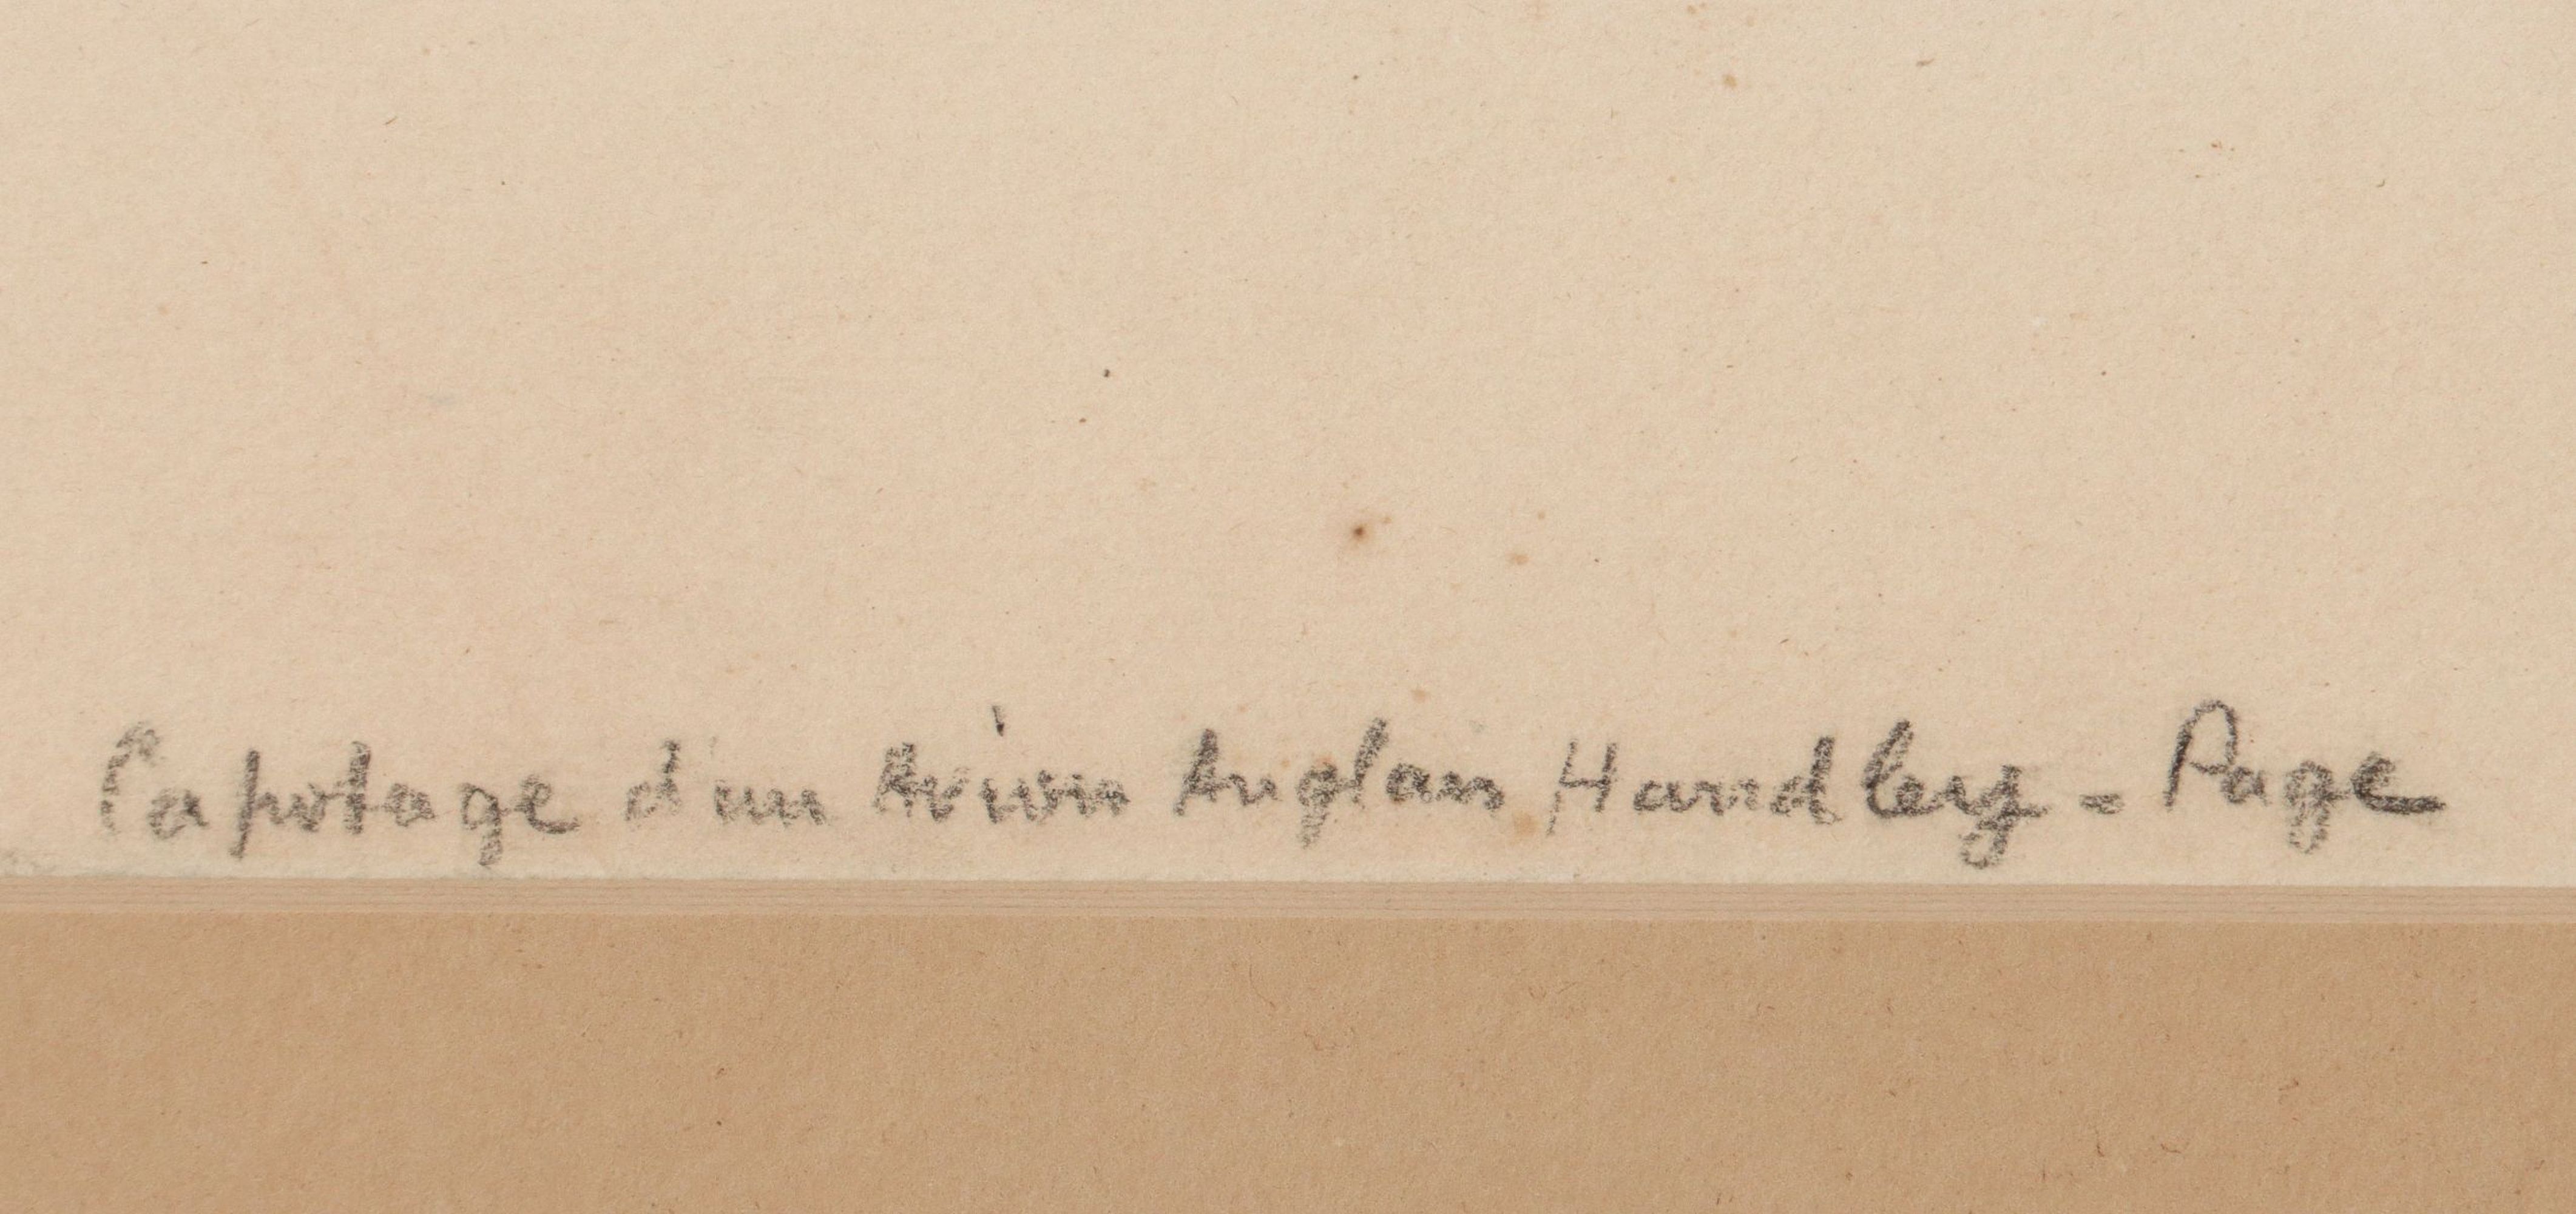 Capotage d'un Avion Anglais Handley-Page